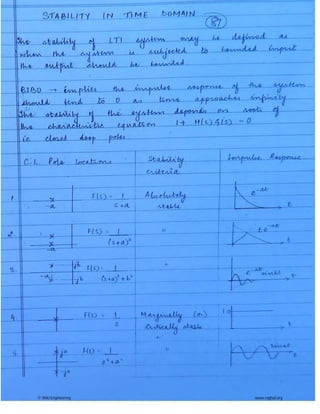 STABILITY IN TIME DOMAIN
81
The stability of LTI system may be defined as
when the system is subjected to bounded input
the output should be bounded.
BIBO → implies the impulse response of the system
should tend to 0 as time approaches infinity
The stability of the system depends on roots of
the characteristic equation 1 + H(s)G(s) = 0
ie closed loop poles.
C.L. Pole Locations Stability criteria Impulse Response
1. x -a F(s) = 1 / s+a Absolutely stable e^-at t
2. x x -a F(s) = 1 / (s+a)² " t e^-at t
3. -a jb jb F(s) = 1 / (s+a)² + b² " e^-at sin bt t
4. x F(s) = 1 / s Marginally (or) Critically stable 1.0 t
5. ja -ja F(s) = 1 / s²+a² " sin at t
© Wiki Engineering www.raghul.org